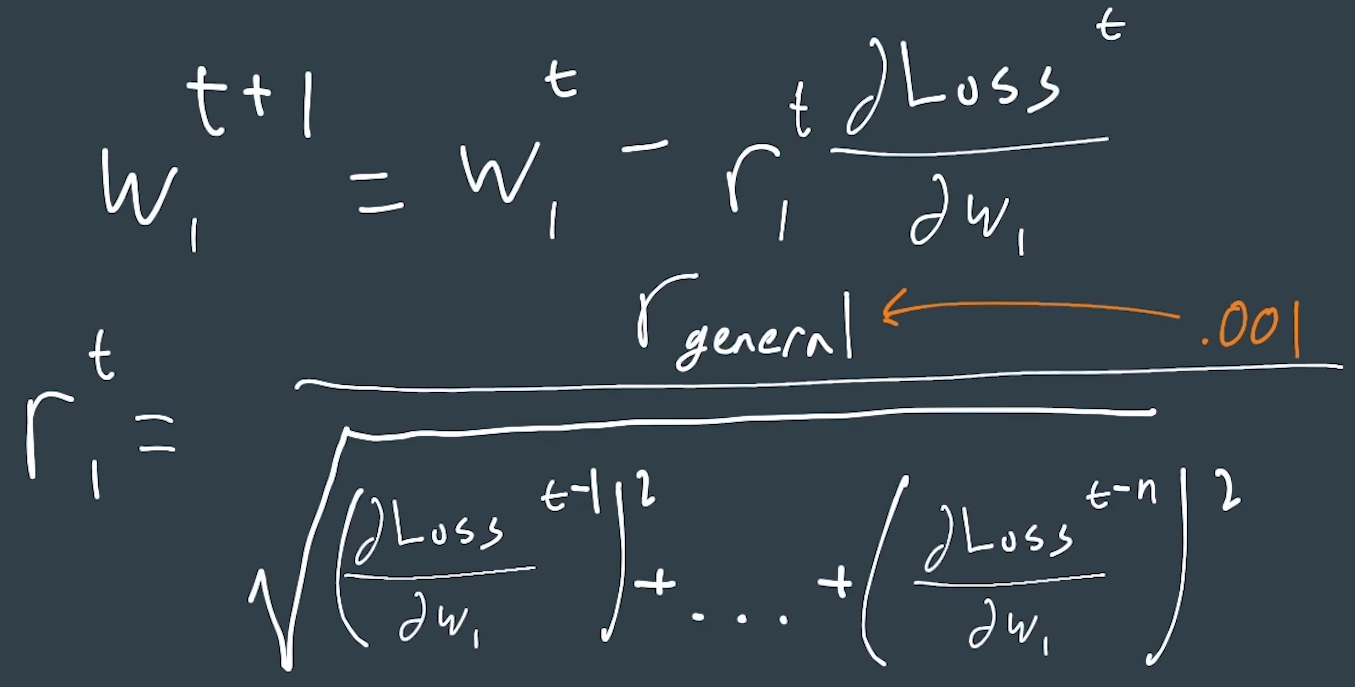 w₁ᵗ⁺¹ = w₁ᵗ − r₁ᵗ ∂Lossᵗ / ∂w₁
r₁ᵗ = r_general / √((∂Lossᵗ⁻¹ / ∂w₁)² + ... + (∂Lossᵗ⁻ⁿ / ∂w₁)²)
.001